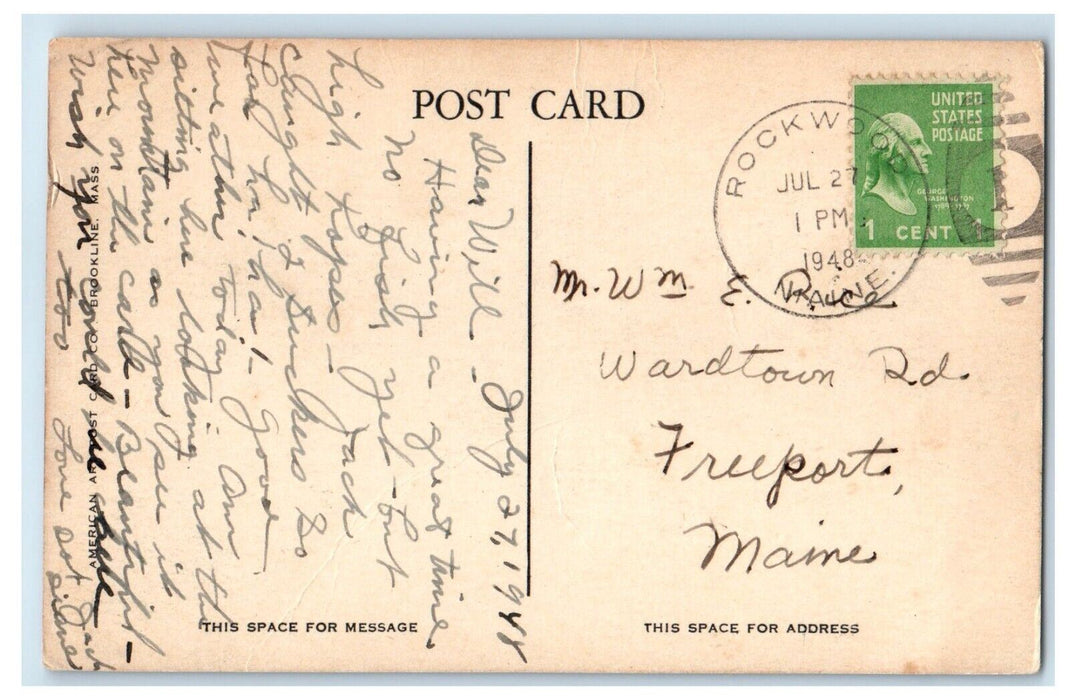 POST CARD
Dear Will - July 27, 1948
Having a great time.
No fish yet - but
high hopes - Jack
caught 2 suckers so
far ha! ha! - good
weather today. Am
sitting here looking at the
Mountain as you see it
here on this card - Beautiful -
Wish you could be here -
too Love Dot Jack
AMERICAN ART POST CARD CO., BROOKLINE, MASS
THIS SPACE FOR MESSAGE
UNITED
STATES
POSTAGE
GEORGE
WASHINGTON
1789-1797
1 CENT 1
ROCKWOOD
JUL 27
1 PM
1948
MAINE.
Mr. Wm. E. Rice
Wardtown Rd.
Freeport,
Maine
THIS SPACE FOR ADDRESS